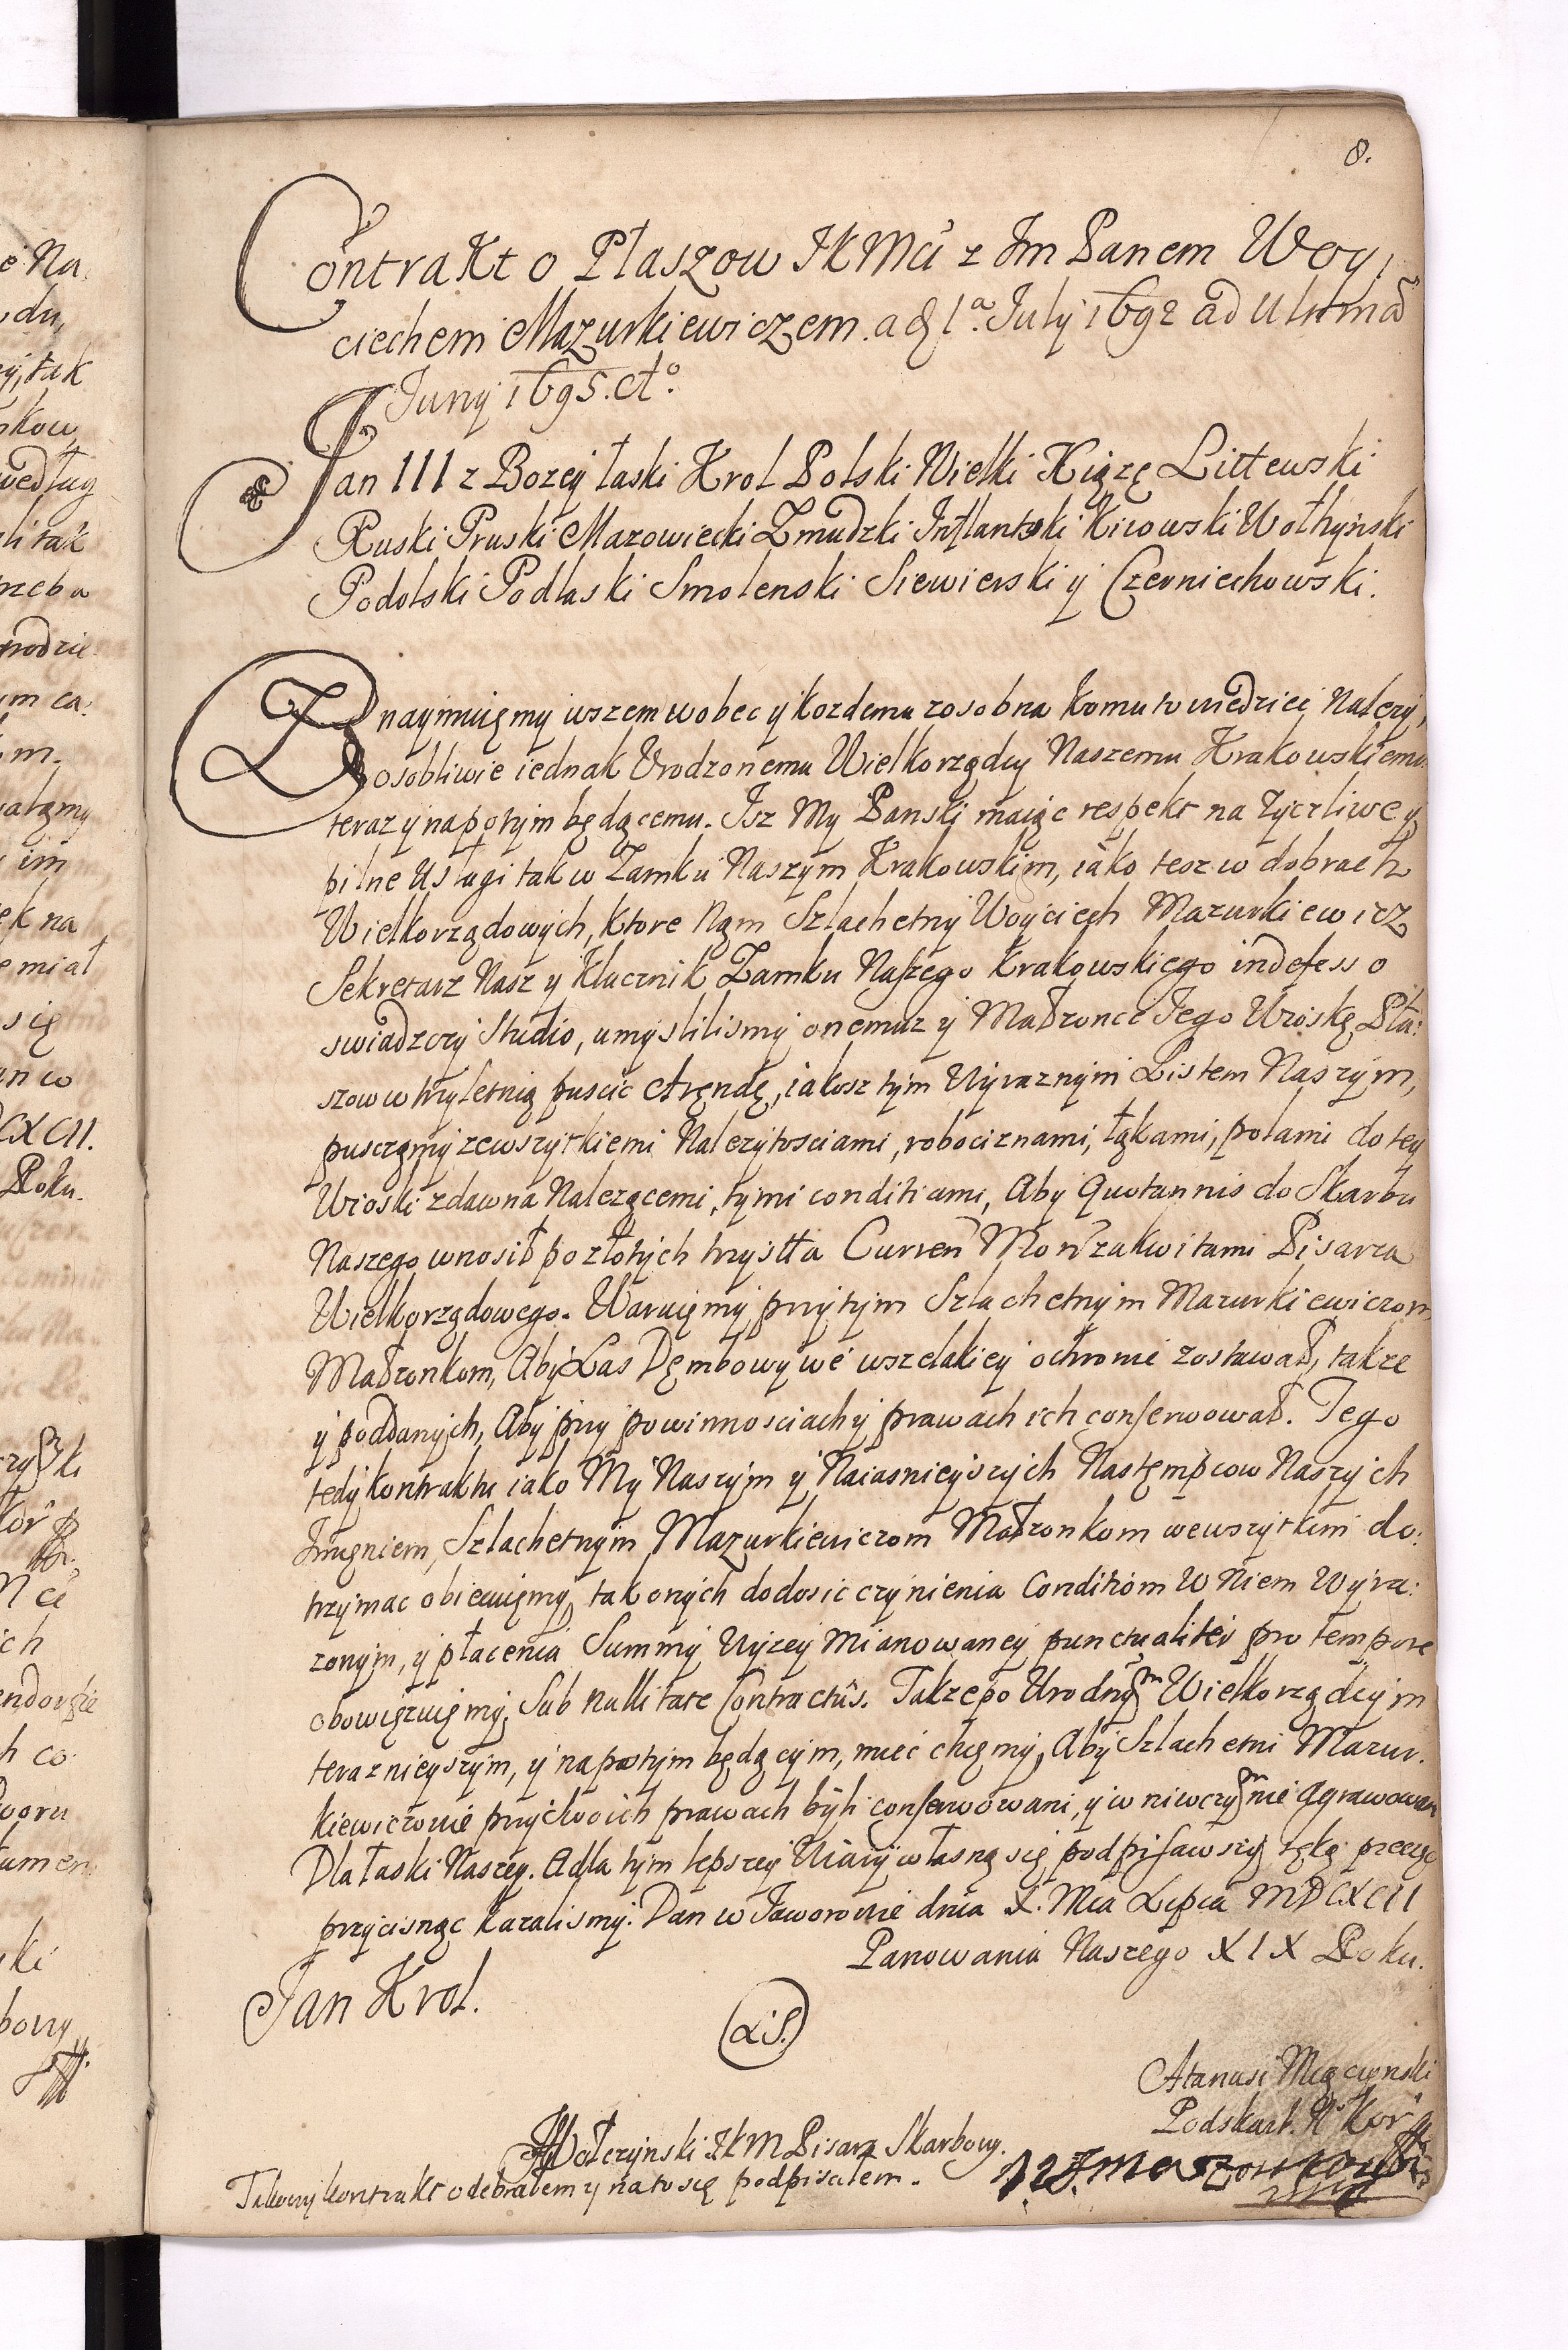 8.
Contrakt o Płaszow JKMci z Im Panem Woy,
ciechem Mazurkiewiczem. a d 1ª. July 1692 ad Ultimã
Juny 1695. ct°.
Jan III z Bozey łaski Krol Polski Wielki Xiązę Littewski
Ruski Pruski Mazowiecki Zmudzki Inflantski Kiiowski Wołhyński
Podolski Podlaski Smolenski Siewierski y Czerniechowski.
Znaymuięmy wszem wobec y kozdemu zosobna komu to wiedziec Nalezy,
osobliwie iednak Urodzonemu Wielkorządcy Naszemu Krakowskiemu
teraz y napotym będącemu. Isz My Panski maiąc respekt na zyczliwe y
pilne Usługi tak w Zamku Naszym Krakowskim, iako tesz w dobrach
Wielkorządowych, ktore Nąm Szlachetny Woyciech Mazurkiewicz
Sekretarz Nasz y Klucznik Zamku Naszego Krakowskiego indefesso
swiadczy Studio, umyslilismy onemuz y Małzonce Jego Wioskę Pła:
szow w trzyletnią puscic Arędę, iakosz tym Wyraznym Listem Naszym,
pusczamy zewszytkiemi Nalezytosciami, robociznami, łąkami, polami do tey
Wioski zdawna Nalezącemi, tymi conditiami, Aby Quotannis do Skarbu
Naszego wnosił po złotych trzysta Curren Mon za kwitami Pisarza
Wielkorządowego. Waruięmy przytym Szlachetnym Mazurkiewiczom
Małzonkom, Aby Las Dęmbowy we wszelakiey ochronie zostawał, takze
y poddanych, Aby przy powinnosciach y prawach ich conserwował. Tego
tedy kontraktu iako My Naszym y Naiasnieyszych Nastęmpcow Naszych
Imięniem, Szlachetnym Mazurkiewiczom Małzonkom wewszytkim do:
trzymac obiecuięmy, tak onych do dosic czynienia Conditiom w Niem Wyra:
zonym, y płacenia Summy Wyzey Mianowaney punctualiter pro tempore
obowięzuięmy, Sub nullitate Contractûs. Takze po Urodnym Wielkorządcym
teraznieyszym, y napotym będącym, miec chcęmy, Aby Szlachetni Mazur.
kiewiczowie przy swoich prawach byli conserwowani, y w niwczym nie agrawowani
Dla łaski Naszey. A dla tym lepszey Wiary własną się podpisawszy ręką pieczęc
przycisnąc kazalismy. Dan w Jaworowie dnia X. Mca Lipca MDCXCII
Panowania Naszego XIX Roku.
Jan Krol.
(L.S.)
Atanasi Miączynski
Podskarb. N. Kor
Wolczynski JKM Pisarz Skarbowy.
Takowy kontrakt odebrałem y na to się podpisałem.